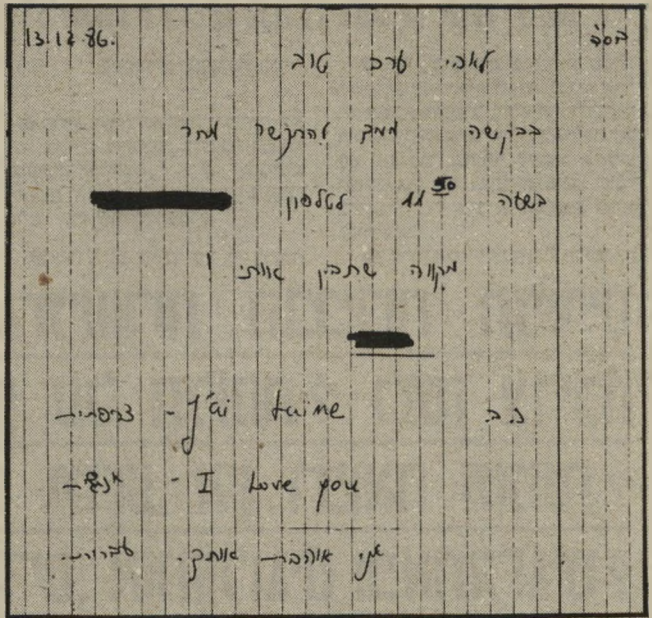 בס"ד 13.12.86.
לאבי ערב טוב
בבקשה ממך להתקשר מחר
בשעה 11 50 לטלפון
מקווה שתבין אותי !
נ.ב. J'ai taime - צרפתית
I Love you - אנגלית
אני אוהבת אותך. עברית